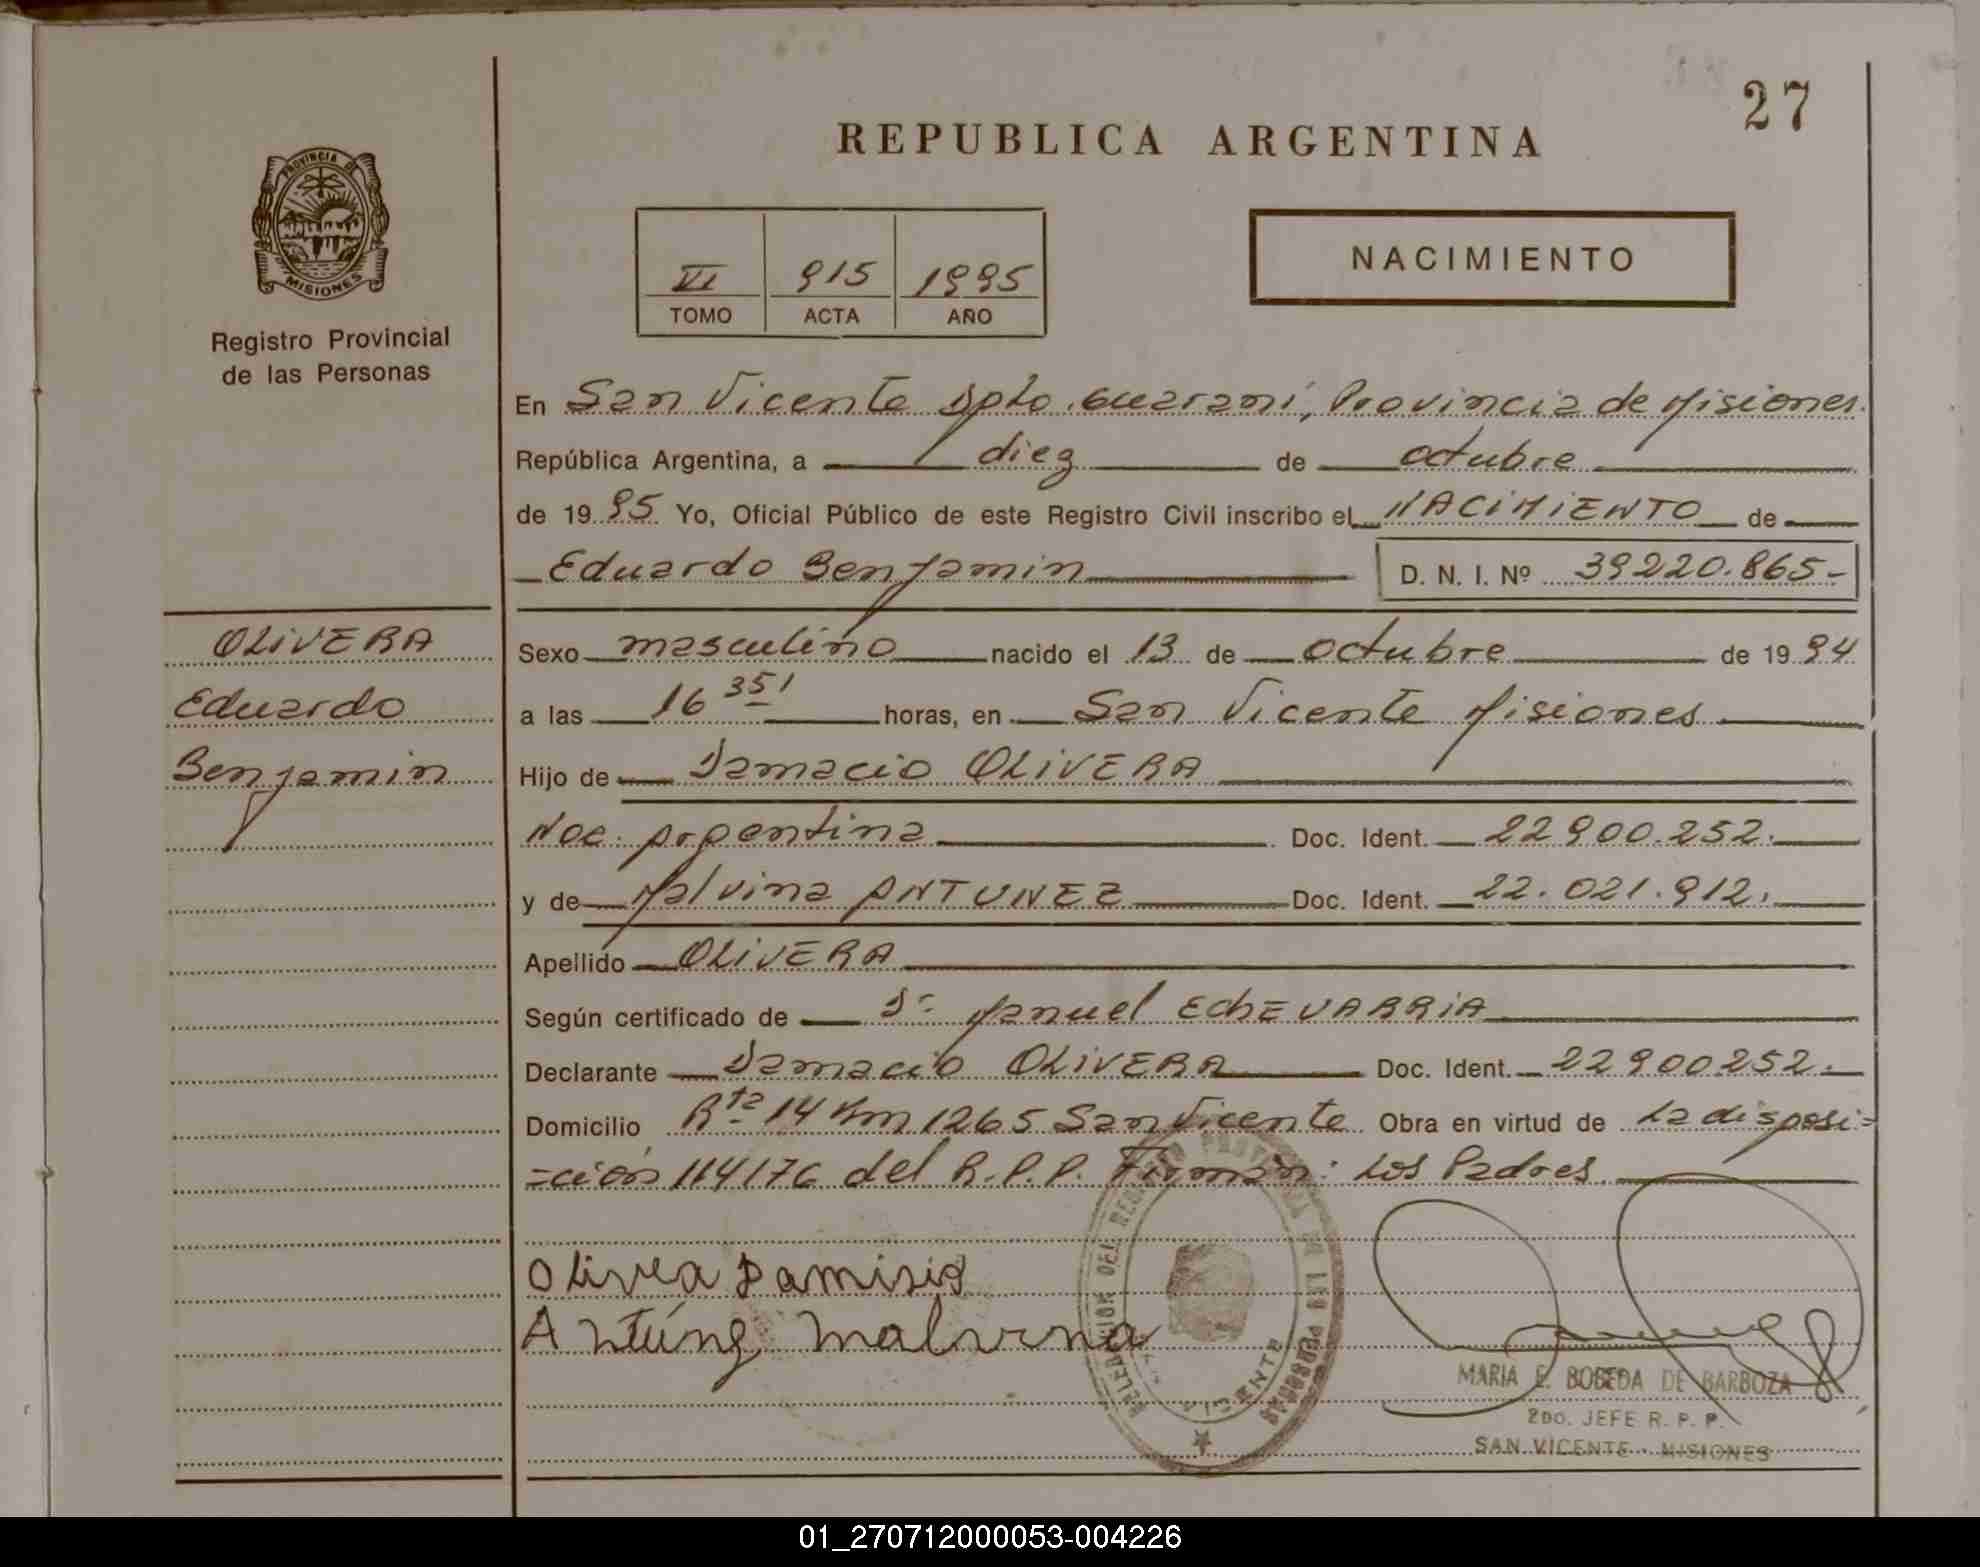 27
REPUBLICA ARGENTINA
PROVINCIA DE
MISIONES
Registro Provincial
de las Personas
VI 915 1995
TOMO ACTA AÑO
NACIMIENTO
En San Vicente Dpto. Guaraní, Provincia de Misiones.
República Argentina, a diez de octubre
de 1995 Yo, Oficial Público de este Registro Civil inscribo el NACIMIENTO de
Eduardo Benjamin D. N. I. Nº 39220.865-
OLIVERA
Eduardo
Benjamin
Sexo masculino nacido el 13 de octubre de 1994
a las 16 35' horas, en San Vicente Misiones
Hijo de Damacio OLIVERA
Nac. Argentina Doc. Ident. 22900.252.
y de Malvina ANTUNEZ Doc. Ident. 22.021.912.
Apellido OLIVERA
Según certificado de Dr Manuel ECHEVARRIA
Declarante Damacio OLIVERA Doc. Ident. 22900252.
Domicilio Rta 14 Km 1265 San Vicente Obra en virtud de La disposi=
=ción 114176 del R.P.P. Firman: Los Padres
Olivea
Malvina
DELEGACION DEL REGISTRO PROVINCIAL DE LAS PERSONAS
VICENTE
MARIA E. BOBEDA DE BARBOZA
2DO. JEFE R. P. P.
SAN VICENTE - MISIONES
01_270712000053-004226